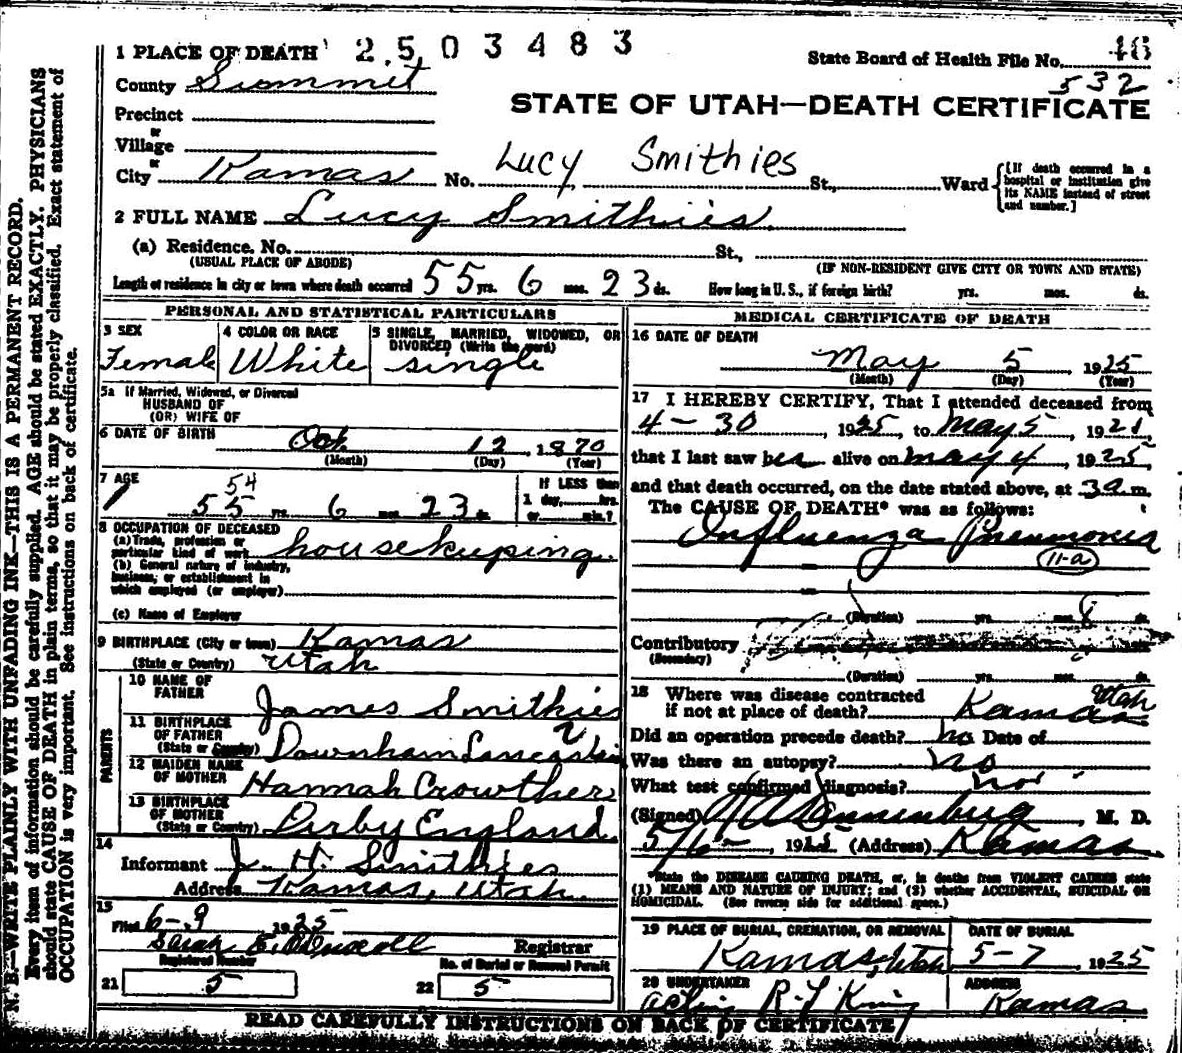 1 PLACE OF DEATH 2503483
State Board of Health File No. 46
532
County Summit
STATE OF UTAH—DEATH CERTIFICATE
Precinct
or
Village
or
City Kamas No. Lucy Smithies St., Ward
[If death occurred in a hospital or institution give its NAME instead of street and number.]
2 FULL NAME Lucy Smithies
(a) Residence. No. St.,
(USUAL PLACE OF ABODE) (IF NON-RESIDENT GIVE CITY OR TOWN AND STATE)
Length of residence in city or town where death occurred 55 yrs. 6 mos. 23 ds. How long in U. S., if foreign birth? yrs. mos. ds.
PERSONAL AND STATISTICAL PARTICULARS
3 SEX 4 COLOR OR RACE 5 SINGLE, MARRIED, WIDOWED, OR
DIVORCED (Write the word)
Female White single
5a If Married, Widowed, or Divorced
HUSBAND OF
(OR) WIFE OF
6 DATE OF BIRTH
Oct 12, 1870
(Month) (Day) (Year)
7 AGE 54
55 yrs. 6 mos. 23 ds.
IF LESS than
1 day, hrs.
or min.?
8 OCCUPATION OF DECEASED
(a) Trade, profession or
particular kind of work housekeeping
(b) General nature of industry,
business, or establishment in
which employed (or employer)
(c) Name of Employer
9 BIRTHPLACE (City or town) Kamas
(State or Country) Utah
PARENTS
10 NAME OF
FATHER James Smithies
11 BIRTHPLACE
OF FATHER
(State or Country) Downham Lancashire
12 MAIDEN NAME
OF MOTHER Hannah Crowther
13 BIRTHPLACE
OF MOTHER
(State or Country) Dirby England
14
Informant J. H. Smithies
Address Kamas, Utah
15
Filed 6-9 1925
Sarah Registrar
Registered Number No. of Burial or Removal Permit
21 5 22 5
MEDICAL CERTIFICATE OF DEATH
16 DATE OF DEATH
May 5 1925
(Month) (Day) (Year)
17 I HEREBY CERTIFY, That I attended deceased from
4-30, 1925, to May 5, 1925,
that I last saw her alive on May 4, 1925,
and that death occurred, on the date stated above, at 3 a m.
The CAUSE OF DEATH* was as follows:
Influenza Pneumonia
11-a
(Duration) yrs. mos. 8 ds.
Contributory
(Secondary)
(Duration) yrs. mos. ds.
18 Where was disease contracted
if not at place of death? Kamas Utah
Did an operation precede death? no Date of
Was there an autopsy? no
What test confirmed diagnosis? no
(Signed) M. D.
5/6-, 1925 (Address) Kamas
*State the DISEASE CAUSING DEATH, or, in deaths from VIOLENT CAUSES state
(1) MEANS AND NATURE OF INJURY; and (2) whether ACCIDENTAL, SUICIDAL OR
HOMICIDAL. (See reverse side for additional space.)
19 PLACE OF BURIAL, CREMATION, OR REMOVAL DATE OF BURIAL
Kamas, Utah 5-7, 1925
20 UNDERTAKER ADDRESS
acting R T King Kamas
READ CAREFULLY INSTRUCTIONS ON BACK OF CERTIFICATE
N. B.—WRITE PLAINLY WITH UNFADING INK—THIS IS A PERMANENT RECORD.
Every item of information should be carefully supplied. AGE should be stated EXACTLY. PHYSICIANS
should state CAUSE OF DEATH in plain terms, so that it may be properly classified. Exact statement of
OCCUPATION is very important. See instructions on back of certificate.